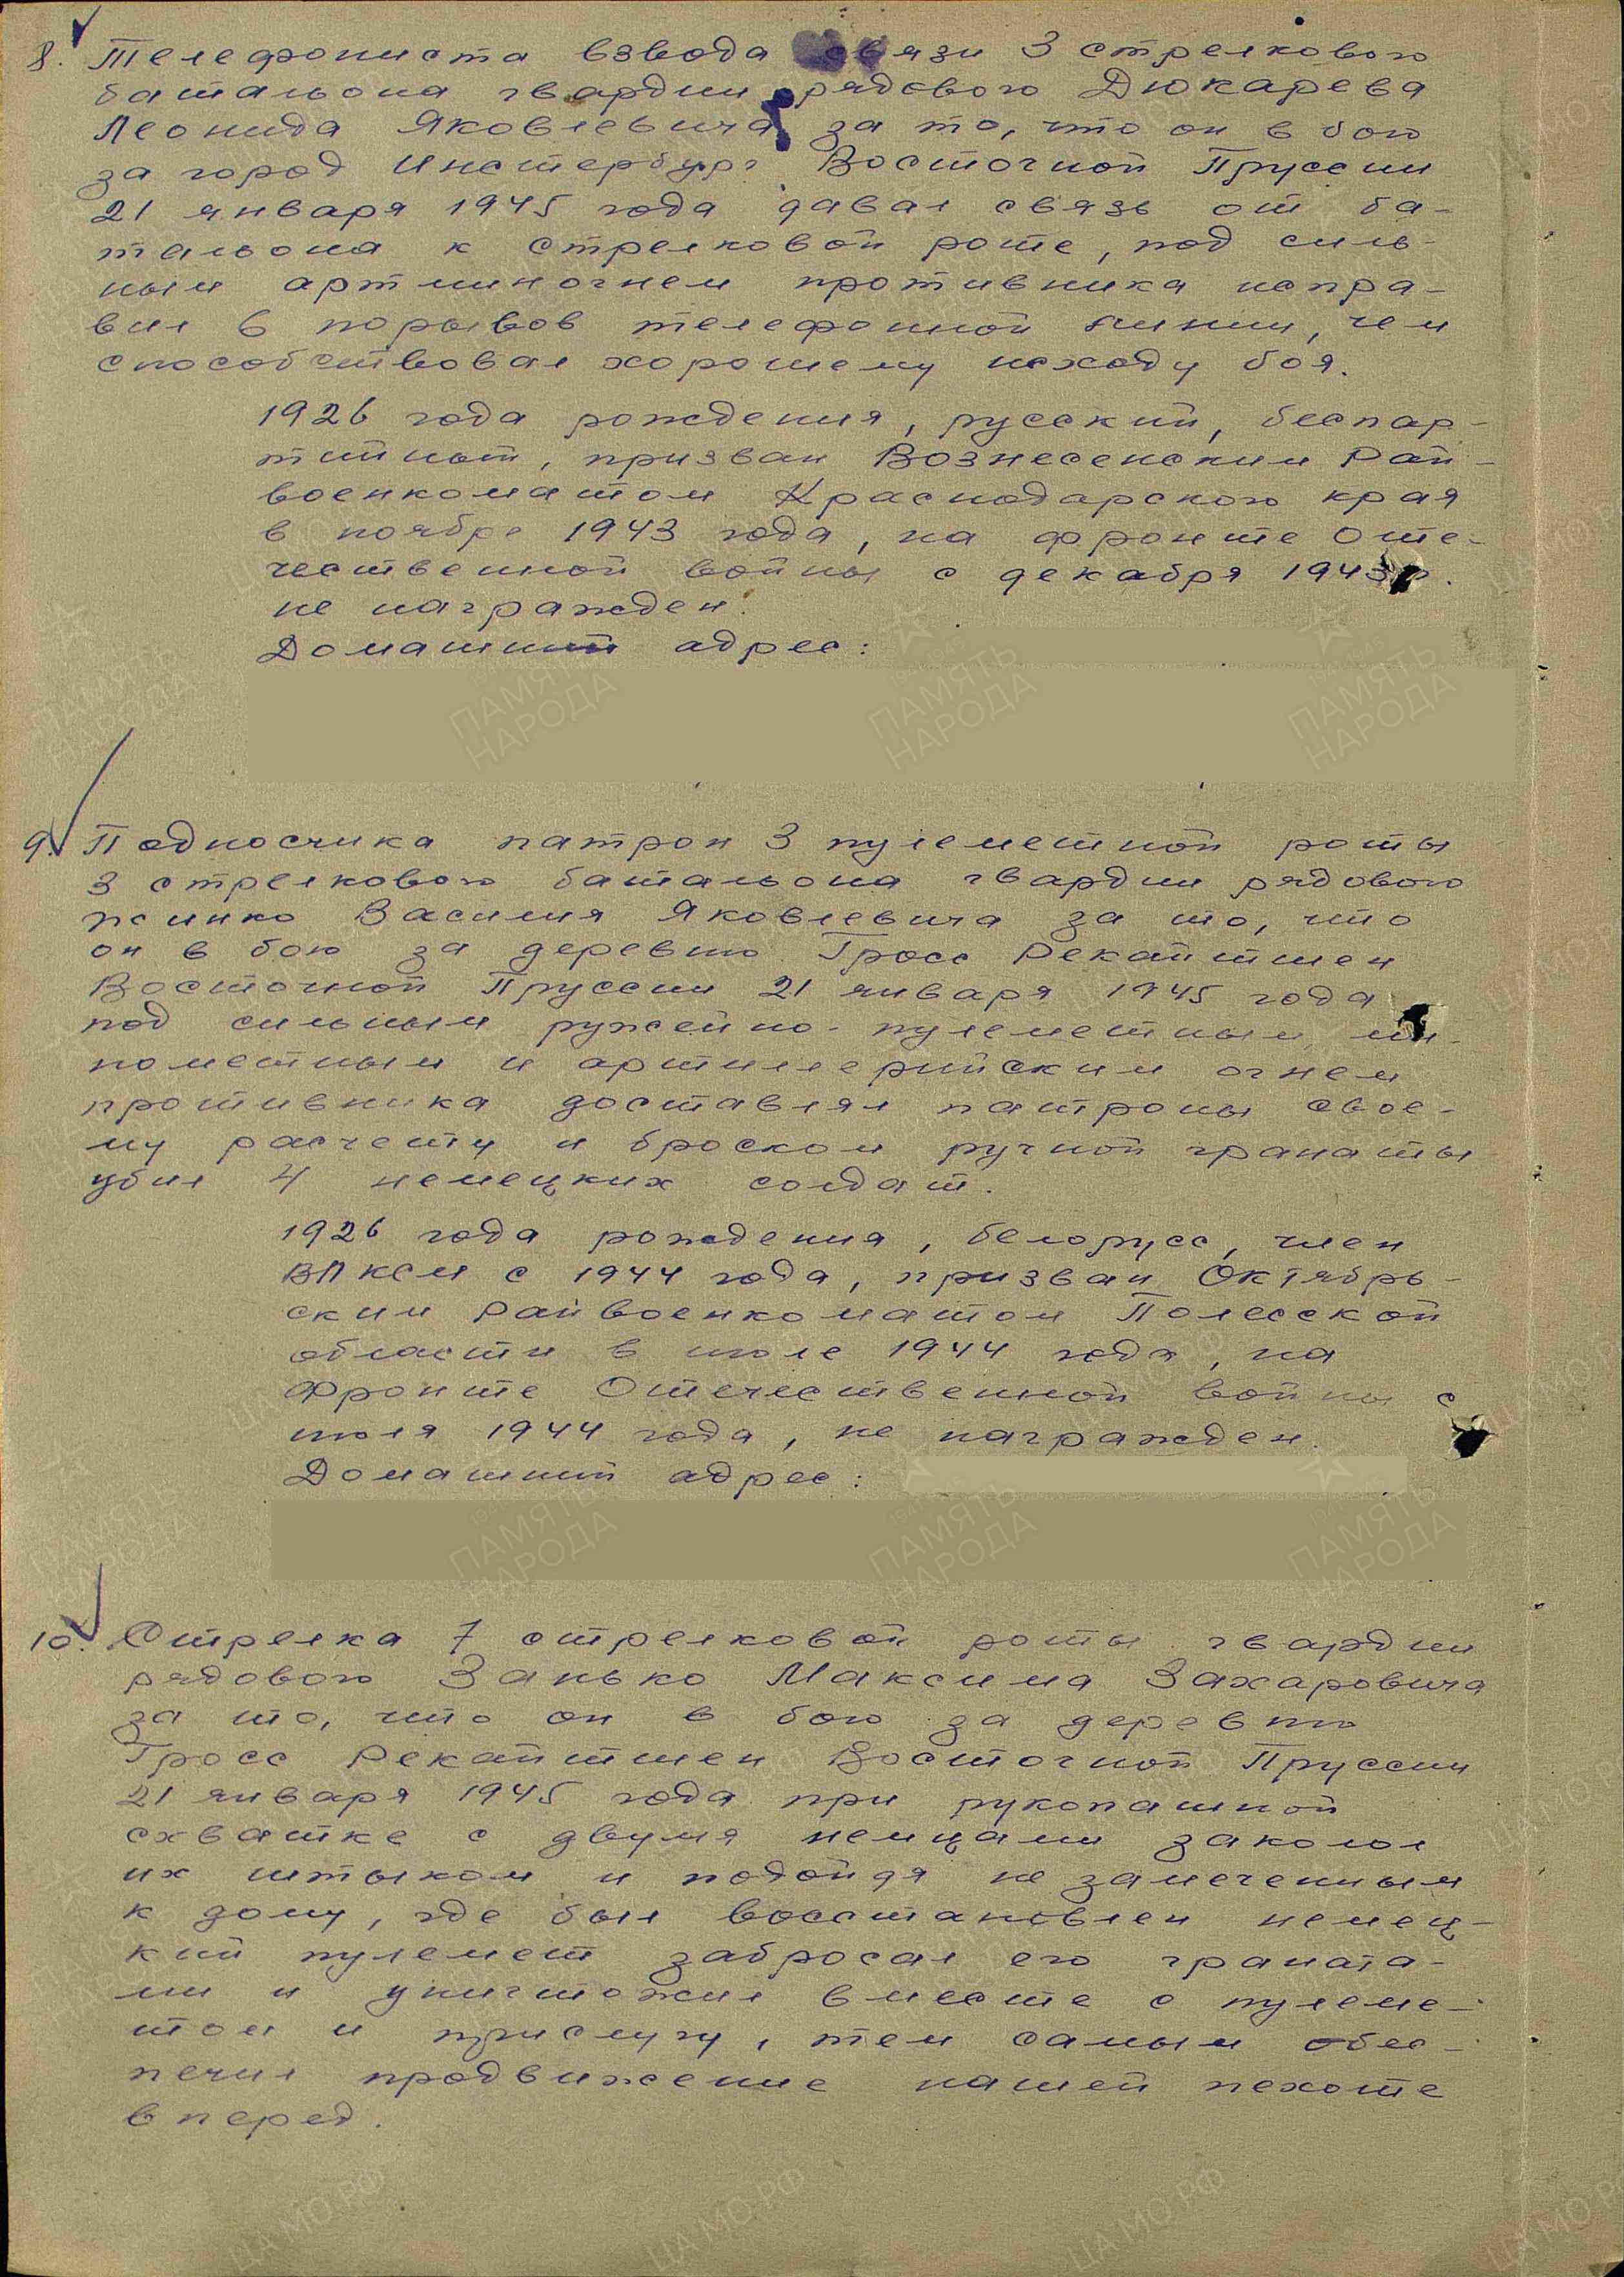 8. Телефониста взвода связи 3 стрелкового
батальона гвардии рядового Дюкарева
Леонида Яковлевича за то, что он в бою
за город Инстербург Восточной Пруссии
21 января 1945 года давая связь от ба-
тальона к стрелковой роте, под силь-
ным артминогнем противника испра-
вил 6 порывов телефонной линии, чем
способствовал хорошему исходу боя.
1926 года рождения, русский, беспар-
тийный, призван Вознесенским Рай-
военкоматом Краснодарского края
в ноябре 1943 года, на фронте Оте-
чественной войны с декабря 1943 г.
не награжден.
Домашний адрес:
9. Подносчика патрон 3 пулеметной роты
3 стрелкового батальона гвардии рядового
Жинко Василия Яковлевича за то, что
он в бою за деревню Гросс Рекайтшен
Восточной Пруссии 21 января 1945 года
под сильным ружейно-пулеметным, ми-
нометным и артиллерийским огнем
противника доставлял патроны свое-
му расчету и броском ручной гранаты
убил 4 немецких солдат.
1926 года рождения, белорусс, член
ВЛКСМ с 1944 года, призван Октябрь-
ским Райвоенкоматом Полесской
области в июле 1944 года, на
фронте Отечественной войны с
июля 1944 года, не награжден.
Домашний адрес:
10. Стрелка 7 стрелковой роты гвардии
рядового Занько Максима Захаровича
за то, что он в бою за деревню
Гросс Рекайтшен Восточной Пруссии
21 января 1945 года при рукопашной
схватке с двумя немцами заколол
их штыком и подойдя не замеченным
к дому, где был восстановлен немец-
кий пулемет забросал его граната-
ми и уничтожил вместе с пулеме-
том и прислугу, тем самым обес-
печил продвижение нашей пехоте
вперед.
ПАМЯТЬ НАРОДА
ЦА МО РФ